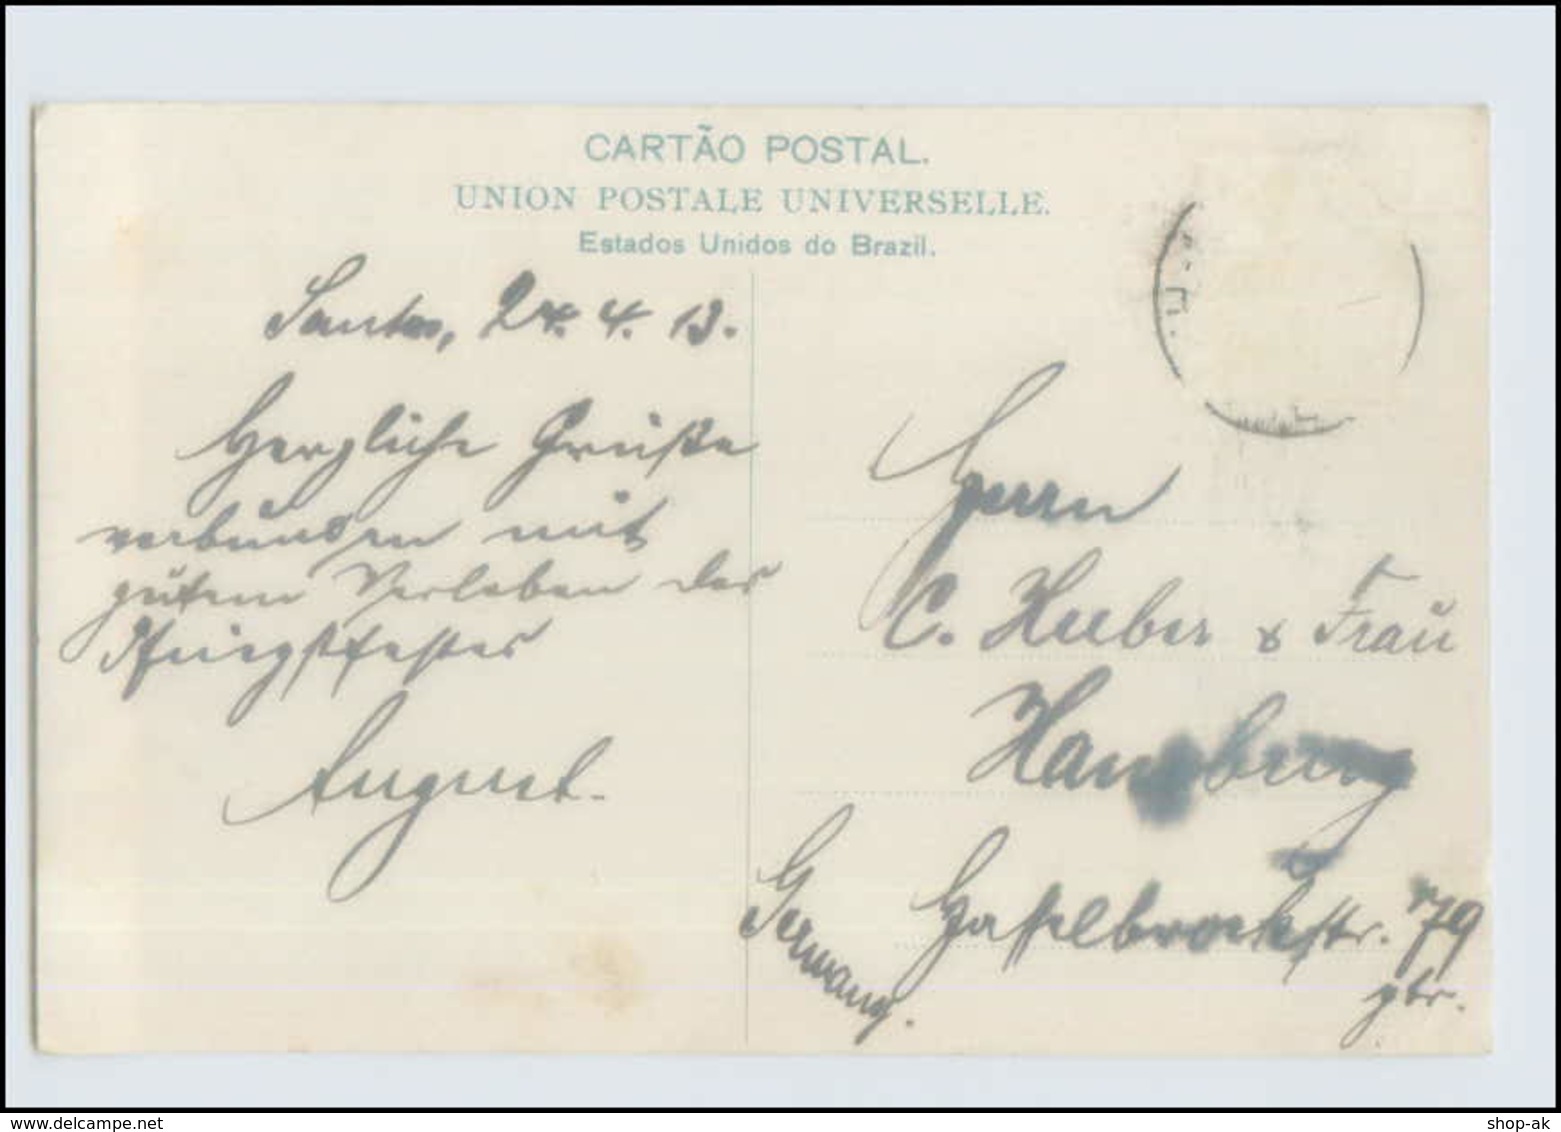 CARTÃO POSTAL.
UNION POSTALE UNIVERSELLE.
Estados Unidos do Brazil.
Santos, 24. 4. 13.
Herzliche Grüsse
verbunden mit
gutem Verleben des
Pfingstfestes
August.
Herrn
C. Huber & Frau
Hamburg
Hasselbrookstr. 79
ptr.
Germany.
shop-ak